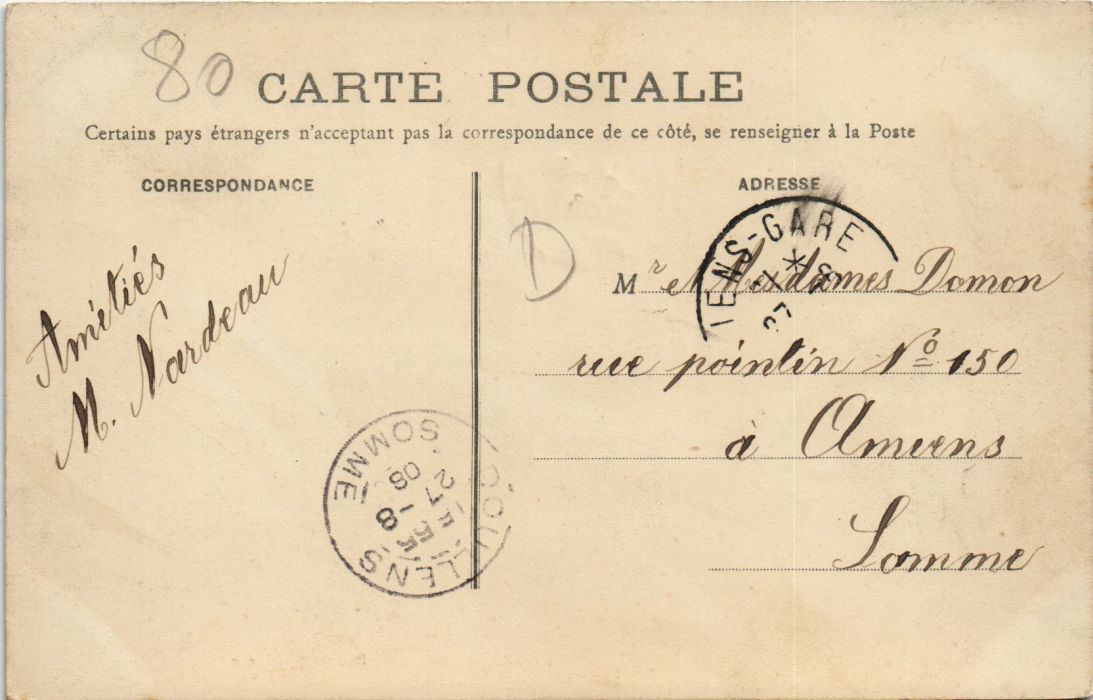 80
CARTE POSTALE
Certains pays étrangers n'acceptant pas la correspondance de ce côté, se renseigner à la Poste
CORRESPONDANCE
Amitiés
M. Nardeau
ADRESSE
D
Mr et Mesdames Domon
rue pointin No 150
à Amiens
Somme
IENS-GARE
DOULLENS
SOMME
15 55
27 -8
08